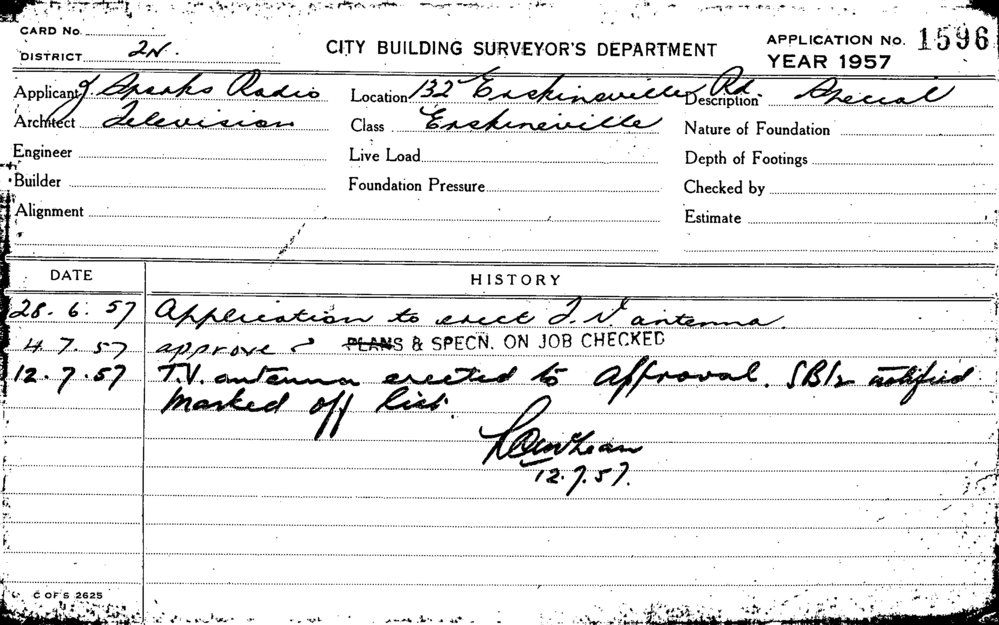 CARD No.
DISTRICT 2N.
CITY BUILDING SURVEYOR'S DEPARTMENT
APPLICATION No. 1596
YEAR 1957
Applicant J Sparks Radio Location 132 Erskineville Rd. Description Special
Architect Television Class Erskineville Nature of Foundation
Engineer Live Load Depth of Footings
Builder Foundation Pressure Checked by
Alignment Estimate
DATE HISTORY
28. 6. 57 Application to erect T.V antenna.
4. 7. 57 approve PLANS & SPECN. ON JOB CHECKED
12. 7. 57 T.V. antenna erected to approval. SBI2 notified
Marked off list.
12. 7. 57.
C OF S 2625